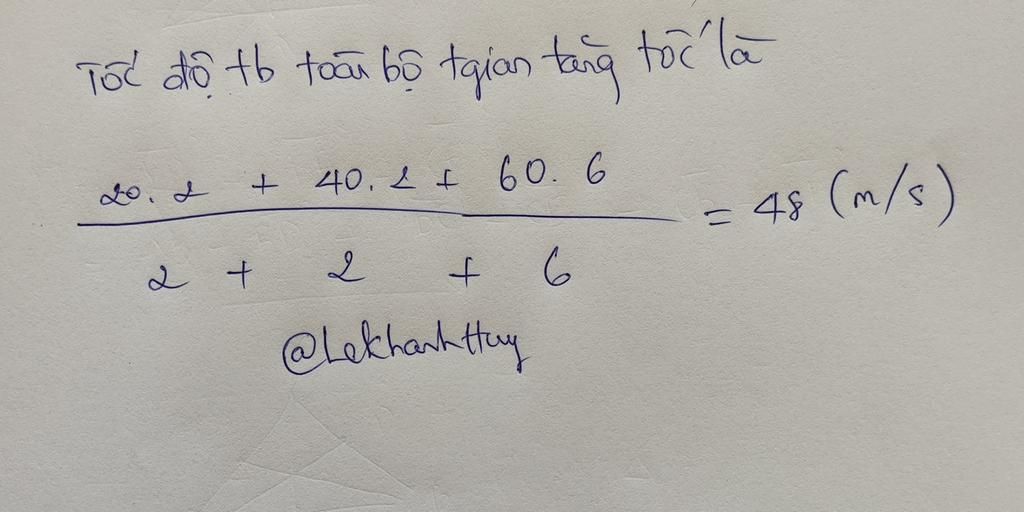 Tốc độ tb toàn bộ tgian tăng tốc là
20. 2 + 40. 2 + 60. 6
= 48 (m/s)
2 + 2 + 6
@LekhanhHuy